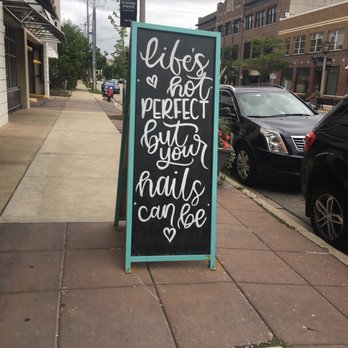 life's
not
PERFECT
but
your
nails
can be